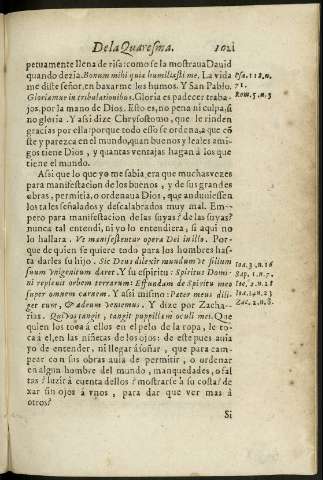 De la Quaresma. 1021
petuamente llena de risa: como se la mostraua Dauid
quando dezia. Bonum mihi quia humiliasti me. La vida
me diste señor, en baxarme los humos. Y San Pablo.
Gloriamur in tribulationibus. Gloria es padecer traba-
jos, por la mano de Dios. Esto es, no pena ni culpa, si
no gloria. Y assi dize Chrysostomo, que le rinden
gracias por ella: porque todo esso se ordena, a que cõ
ste y parezca en el mundo, quan buenos y leales ami-
gos tiene Dios, y quantas ventajas hagan à los que
tiene el mundo.
Assi que lo que yo me sabia era que muchas vezes
para manifestacion de los buenos, y de sus grandes
obras, permitia, o ordenaua Dios, que anduuiessen
los tales señalados y descalabrados muy mal. Em-
pero para manifestacion de las suyas? de las suyas?
nunca tal entendi, ni yo lo entendiera, si aqui no
lo hallara. Vt manifestentur opera Dei in illo. Por-
que de quien se quiere todo para los hombres has-
ta darles su hijo. Sic Deus dilexit mundum vt filium
suum vnigenitum daret. Y su espiritu: Spiritus Domi-
ni repleuit orbem terrarum: Effundam de Spiritu meo
super omnem carnem. Y assi mismo: Pater meus dili-
get eum, & ad eum veniemus. Y dize por Zacha-
rias. Qui vos tangit, tangit pupillam oculi mei. Que
quien los toca à ellos en el pelo de la ropa, le to-
ca à el, en las niñetas de los ojos: de este pues auia
yo de entender, ni llegar à soñar, que para cam-
pear con sus obras auia de permitir, o ordenar
en algun hombre del mundo, manquedades, o fal
tas? luzir à cuenta dellos? mostrarse à su costa? de
xar sin ojos à vnos, para dar que ver mas à
otros?
Si
Psa. 118. n.
71.
Rom. 5. n. 3
Ioa. 3. n. 16
Sap. 1. n. 7.
Ioe. 2. n. 28
Ioa. 14. n. 23
Zac. 2. n. 8.